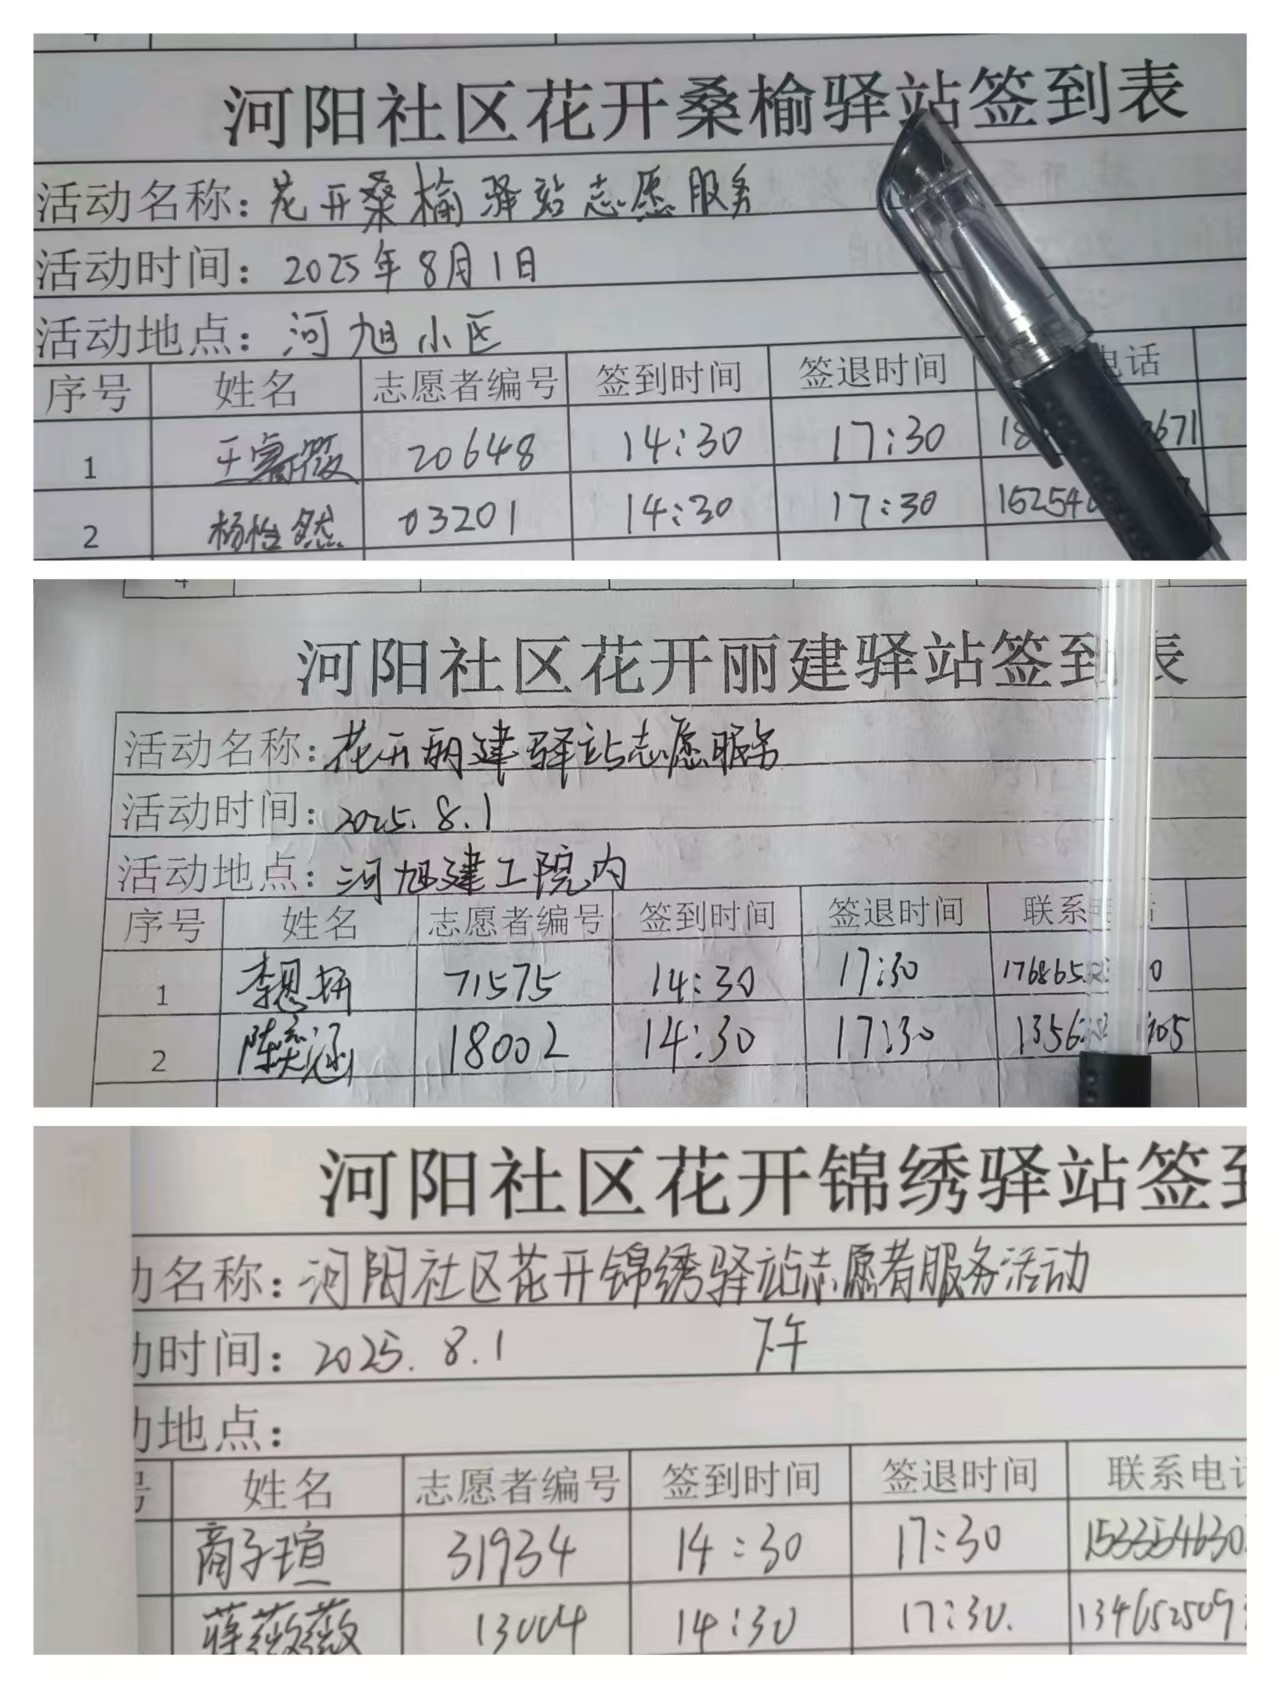 4
河阳社区花开桑榆驿站签到表
活动名称：花开桑榆驿站志愿服务
活动时间：2025年8月1日
活动地点：河旭小区
序号 姓名 志愿者编号 签到时间 签退时间 电话
1 王睿薇 20648 14:30 17:30 18 671
2 杨怡然 03201 14:30 17:30 15254
4
河阳社区花开丽建驿站签到表
活动名称：花开丽建驿站志愿服务
活动时间：2025.8.1
活动地点：河旭建工院内
序号 姓名 志愿者编号 签到时间 签退时间 联系电话
1 李思妍 71575 14:30 17:30 176865 0
2 陈奕涵 18002 14:30 17:30 1356 05
河阳社区花开锦绣驿站签到
动名称：河阳社区花开锦绣驿站志愿者服务活动
动时间：2025.8.1 下午
动地点：
号 姓名 志愿者编号 签到时间 签退时间 联系电话
商子瑄 31934 14:30 17:30 153354630
蒋薇薇 13004 14:30 17:30. 1346525093